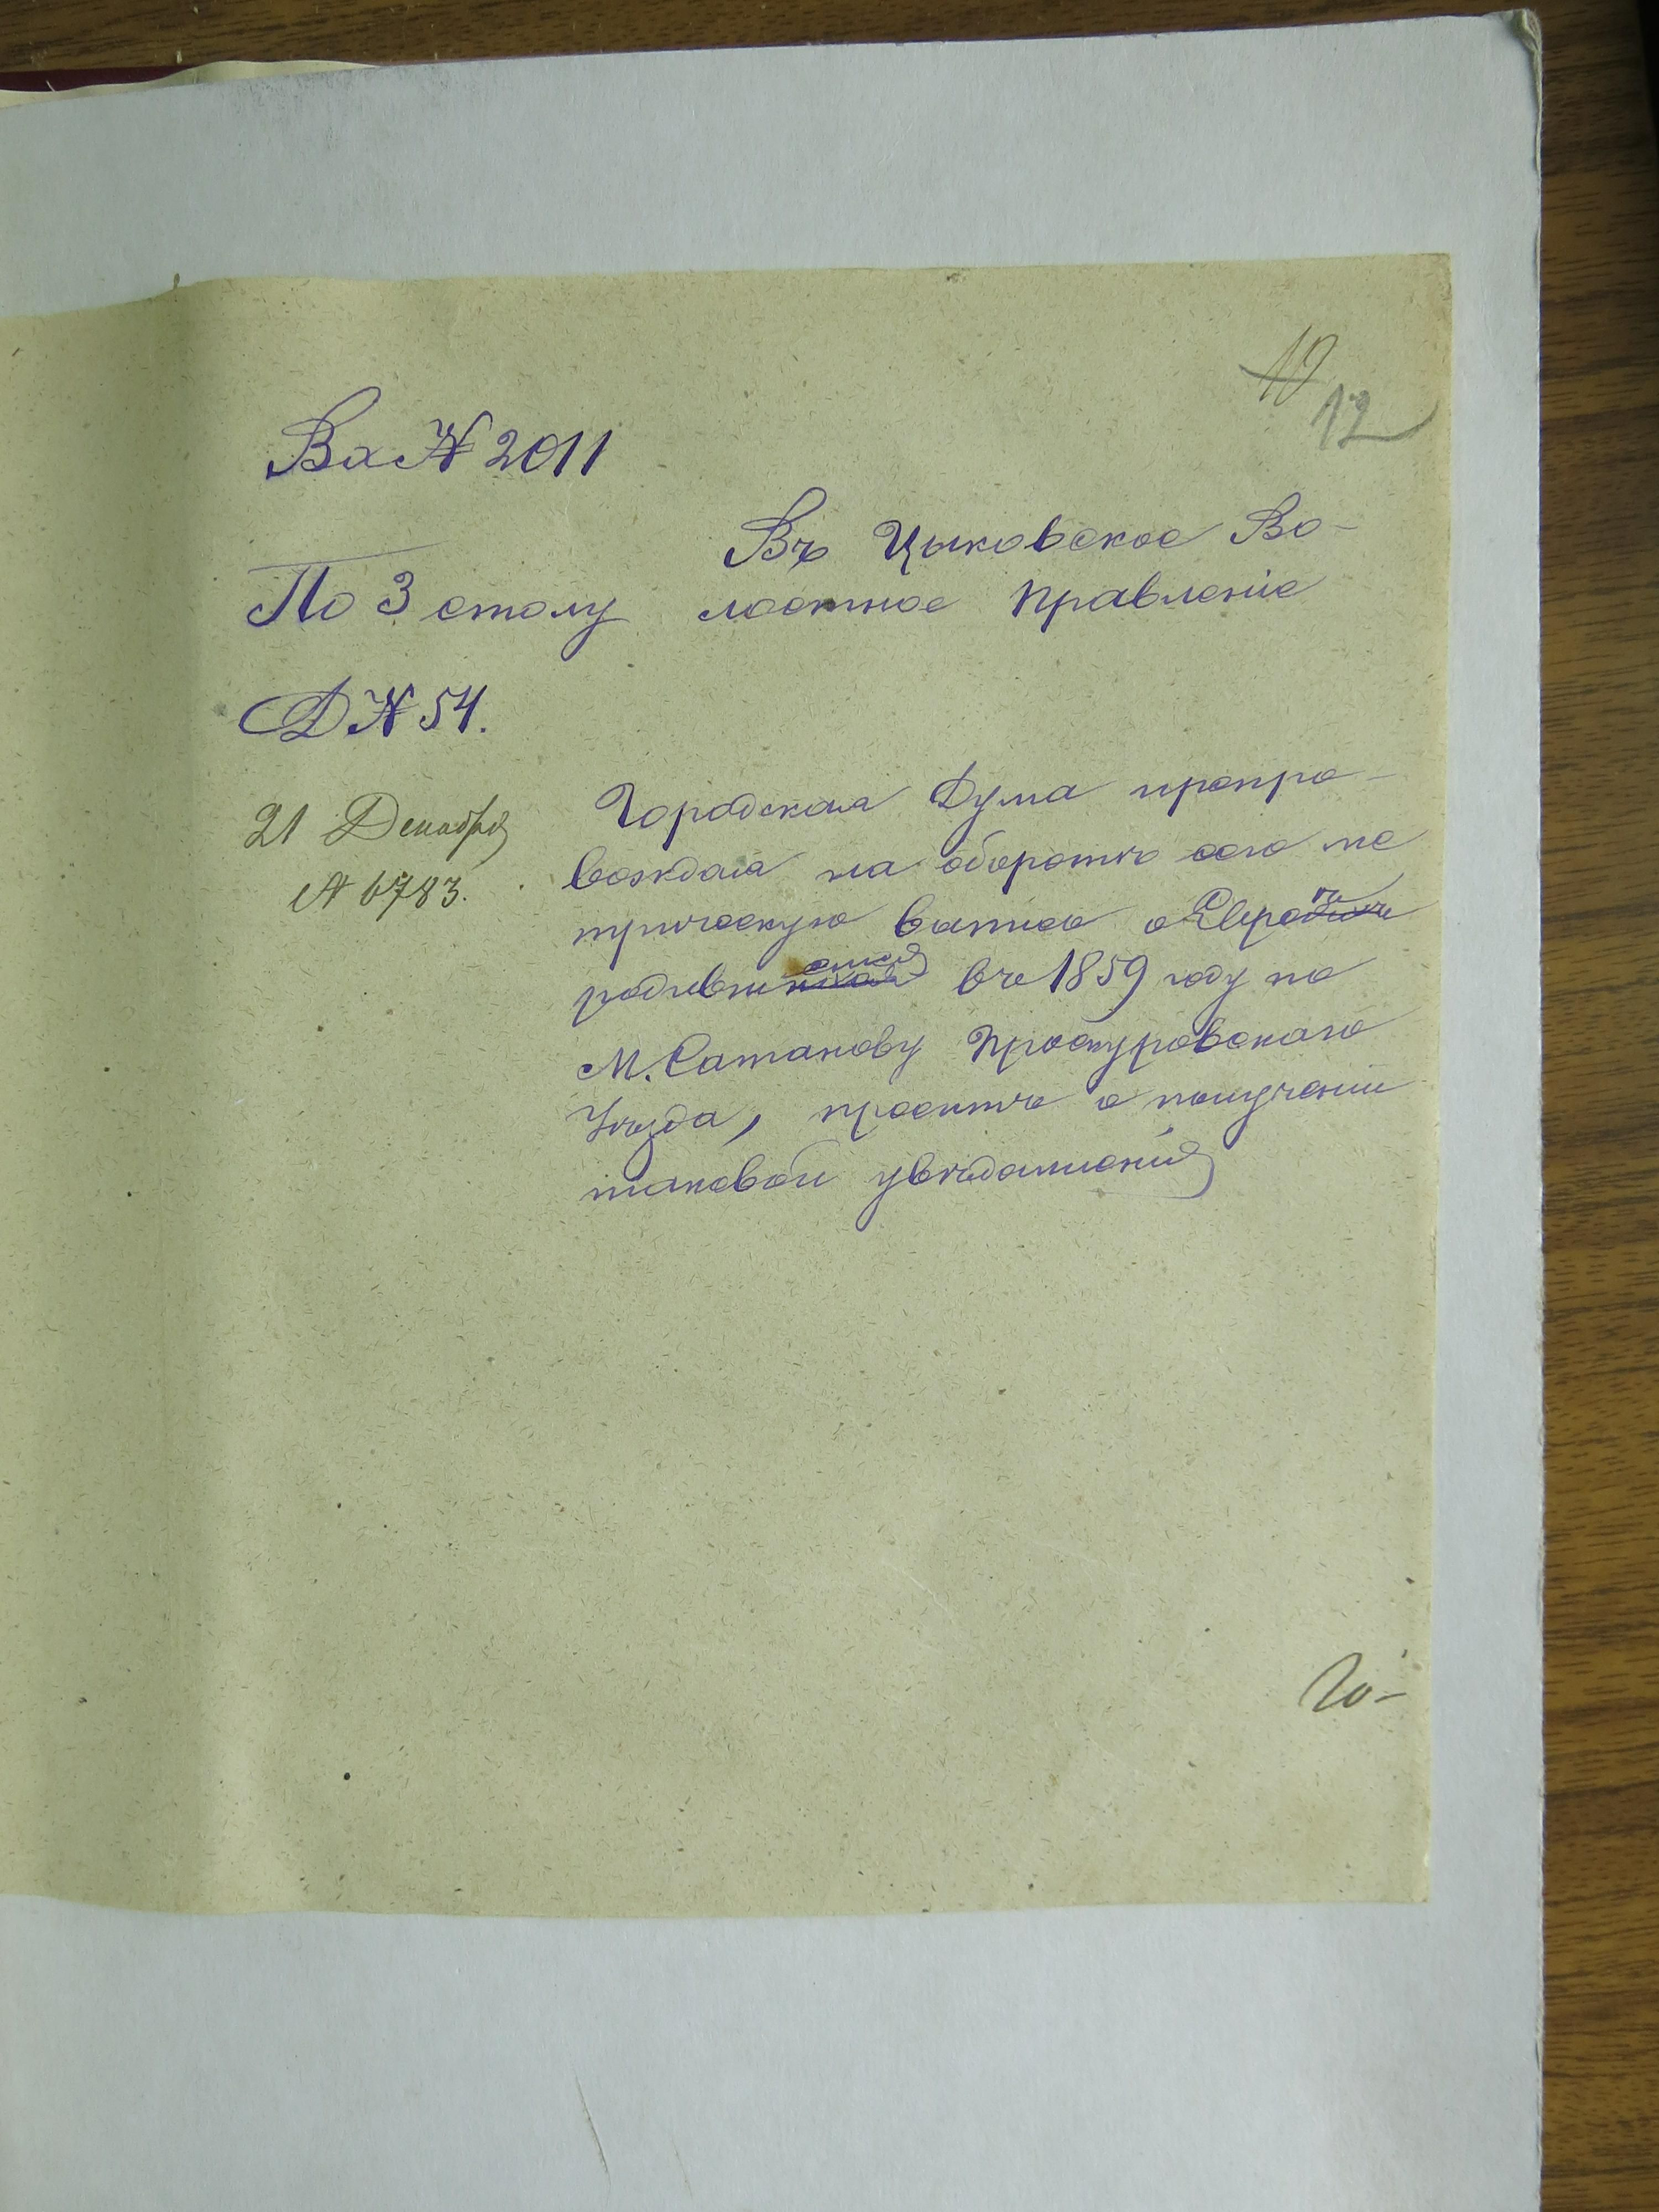 10
12
Вх № 2011
Въ Цыковское Во-
По 3 столу лостное Правленіе
Д № 54.
21 Декабря
№ 6783.
Городская Дума препро-
вождая на оборотѣ сего ме
трическую выпись о Евре
родивш емся въ 1859 году по
М. Сатанову Проскуровскаго
Уѣзда, проситъ о полученіи
таковой увѣдомленія